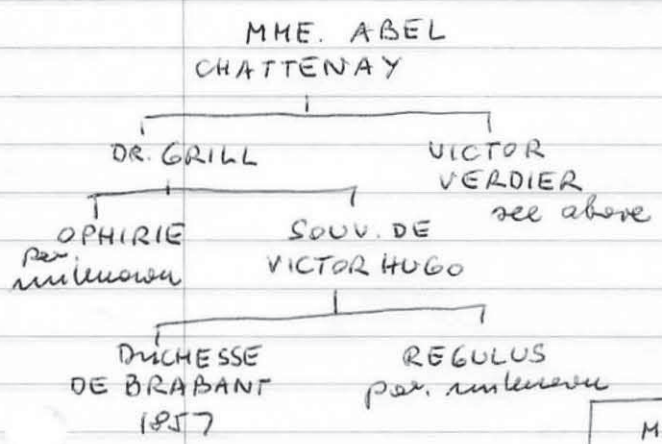 MME. ABEL
CHATTENAY
DR. GRILL
VICTOR
VERDIER
see above
OPHIRIE
par.
unknown
SOUV. DE
VICTOR HUGO
DUCHESSE
DE BRABANT
1857
REGULUS
par. unknown
M